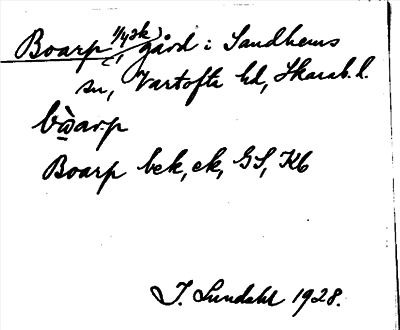 Boarp (1/4 sk) gård i Sandhems
sn, Vartofta hd, Skarab. l.
bòarp
Boarp bek, ek, GS, Kb
I. Lundahl 1928.